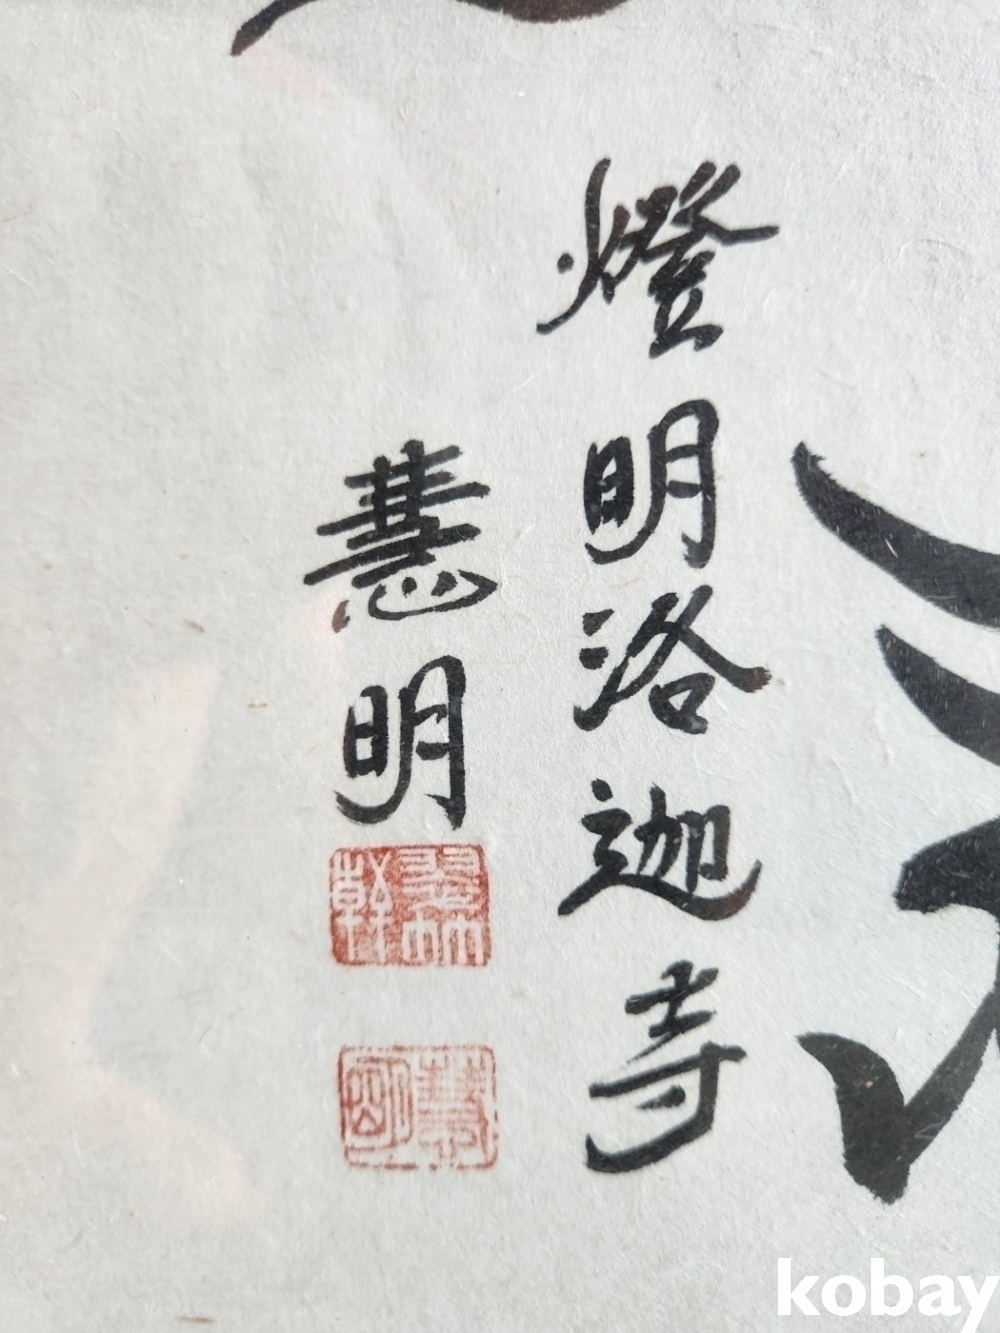 燈明洛迦寺
慧明
慧明
kobay